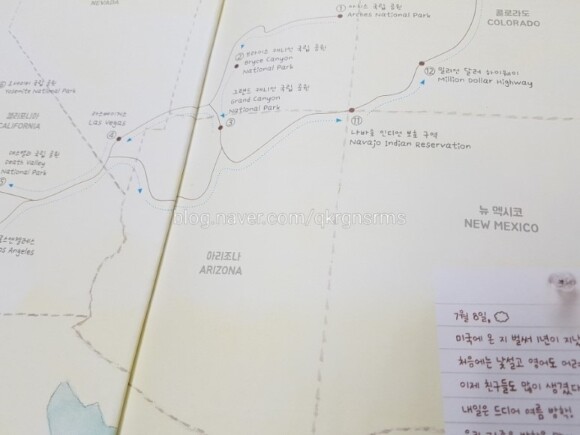 NEVADA
① 아치스 국립 공원
Arches National Park
콜로라도
COLORADO
② 브라이스 캐니언 국립 공원
Bryce Canyon
National Park
⑫ 밀리언 달러 하이웨이
Million Dollar Highway
요세미티 국립 공원
Yosemite National Park
그랜드 캐니언 국립 공원
Grand Canyon
National Park
③
라스베이거스
Las Vegas
④
캘리포니아
CALIFORNIA
⑪
나바호 인디언 보호 구역
Navajo Indian Reservation
데스밸리 국립 공원
Death Valley
National Park
⑤
로스앤젤레스
Los Angeles
blog.naver.com/qkrgnsrms
뉴 멕시코
NEW MEXICO
아리조나
ARIZONA
7월 8일,
미국에 온 지 벌써 1년이 지났
처음에는 낯설고 영어도 어려
이제 친구들도 많이 생겼다
내일은 드디어 여름 방학!